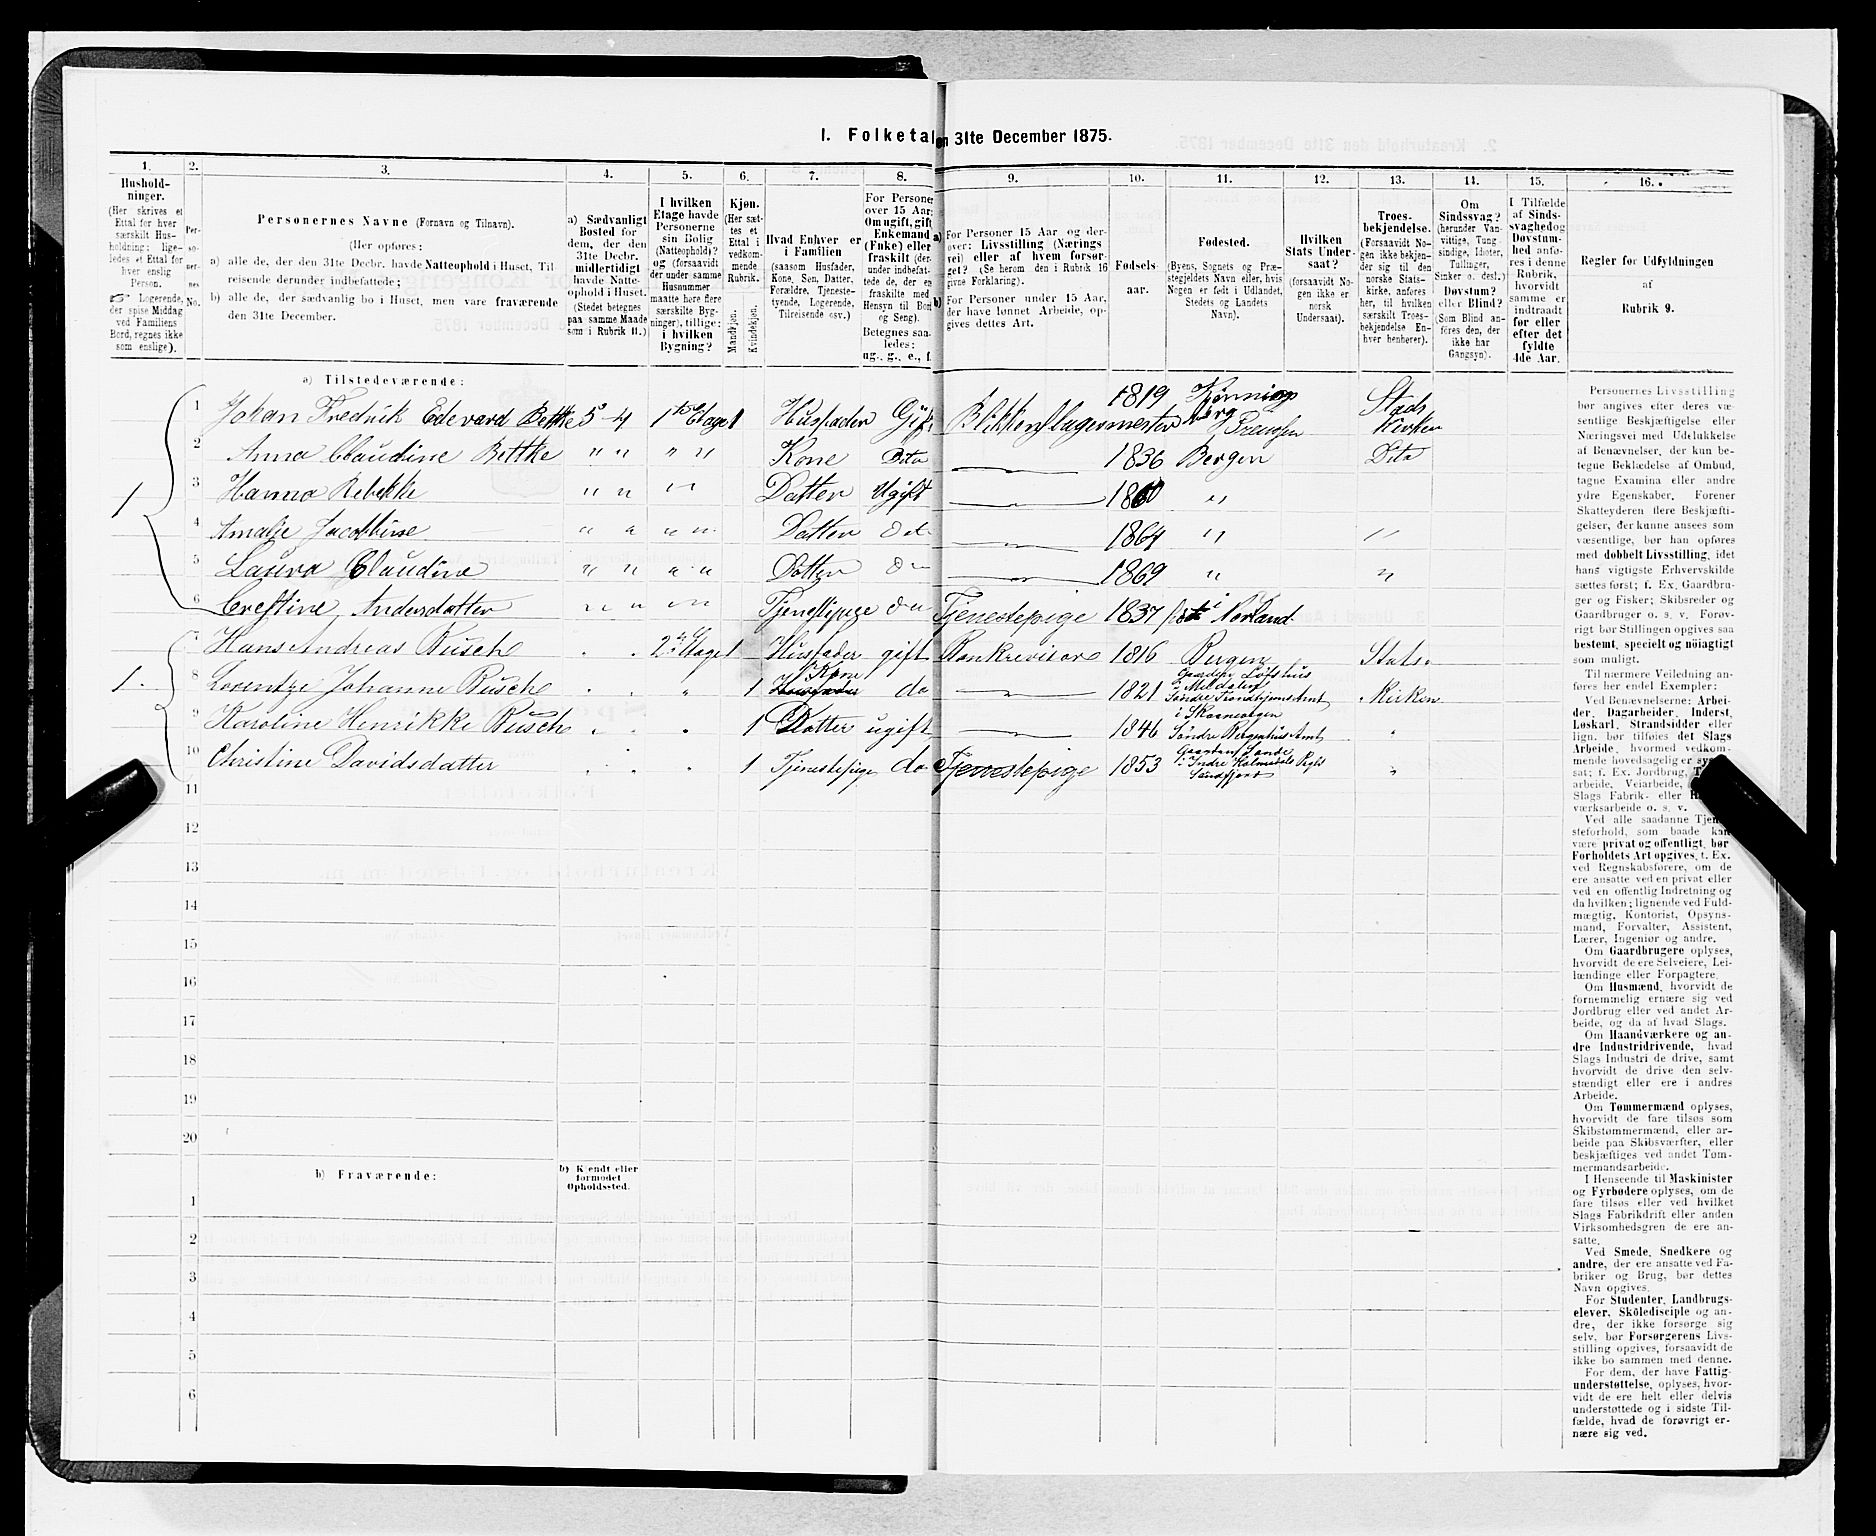 I. Folketal den 31te December 1875.
1.
Hushold-
ninger.
(Her skrives et
Ettal for hver
særskilt Hus-
holdning; lige-
ledes et Ettal for
hver enslig
Person.
☞ Logerende,
der spise Middag
ved Familiens
Bord, regnes ikke
som enslige).
2.
Per-
so-
ner-
nes
No.
3.
Personernes Navne (Fornavn og Tilnavn).
(Her opføres:
a) alle de, der den 31te Decbr. havde Natteophold i Huset, Til-
reisende derunder indbefattede;
b) alle de, der sædvanlig bo i Huset, men vare fraværende
den 31te December.
4.
a) Sædvanligt
Bosted for
dem, der den
31te Decbr.
midlertidigt
havde Natte-
ophold i Huset.
(Stedet betegnes
paa samme Maade
som i Rubrik 11.)
5.
I hvilken
Etage havde
Personerne
sin Bolig
(Natteophold)?
og (forsaavidt
der under samme
Husnummer
maatte høre flere
særskilte Byg-
ninger), tillige:
i hvilken
Bygning?
6.
Kjøn.
(Her sæt-
tes et
Ettal i
vedkom-
mende
Rubrik.
Mandkjøn.
Kvindekjøn.
7.
Hvad Enhver er
i Familien
(saasom Husfader,
Kone, Søn, Datter,
Forældre, Tjeneste-
tyende, Logerende,
Tilreisende osv.)
8.
For Persone
over 15 Aar:
Om ugift, gift
Enkemand
(Enke) eller
fraskilt (der-
under indbefat-
tede de, der en
fraskilte med
Hensyn til Bord
og Seng).
Betegnes saa-
ledes:
ug., g., e., f.
9.
a) For Personer 15 Aar og der-
over: Livsstilling (Nærings
vei) eller af hvem forsør-
get? (Se herom den i Rubrik 16
givne Forklaring).
b) For Personer under 15 Aar,
der have lønnet Arbeide, op-
gives dettes Art.
10.
Fødsels-
aar.
11.
Fødested.
(Byens, Sognets og Præ-
stegjeldets Navn eller, hvis
Nogen er født i Udlandet,
Stedets og Landets
Navn).
12.
Hvilken
Stats Under-
saat?
(forsaavidt No-
gen ikke er
norsk
Undersaat).
13.
Troes-
bekjendelse.
(Forsaavidt No-
gen ikke bekjen-
der sig til den
norske Stats-
kirke, anføres
her, til hvilken
særskilt Troes-
bekjendelse En-
hver henhører).
14.
Om
Sindssvag?
(herunder Van-
vittige, Tung-
sindige, Idioter,
Tullinger,
Sinker o. desl.)
Døvstum?
eller Blind?
(Som Blind an-
føres den, der
ikke har
Gangsyn).
15.
I Tilfælde
af Sinds-
svaghed og
Døvstum-
hed anfø-
res i denne
Rubrik,
hvorvidt
samme er
indtraadt
før eller
efter det
fyldte
4de Aar.
16.
Regler for Udfyldningen
af
Rubrik 9.
a) Tilstedeværende:
1 1 Johan Fredrik Edevard Bettke 5 - 4 1ste Etage 1 Husfader Gift Blikkenslagermester 1819 Kønnings berg Preussen Stads Kirken
2 Anna Claudine Bettke " " " " Kone Dito 1836 Bergen Dito
3 Hanna Rebekke " " " " Datter Ugift 1860 "
4 Amalje Jacobbine " " " " Datter do 1864 " "
5 Laura Claudine " " " " Datter do 1869 " "
6 Crestine Andersdatter " " " " Tjenestpige do Tjenestepige 1837 i Norland
1 7 Hans Andreas Busch 2den Etage 1 Husfader gift Bankrevisor 1816 Bergen Stats-
8 Lorentze Johanne Busch " 1 Kone do 1821 Gaarden Lofthus i Søndre Trondhjems Amt Kirken
9 Karoline Henrikke Busch " 1 Datter ugift 1846 i Søndre Bergenhus Amt "
10 Christine Davidsdatter " 1 Tjenestepige do Tjenestepige 1853 Gaarden Sande i Indre Holmedals Søndfjord "
11
12
13
14
15
16
17
18
19
20
b) Fraværende:
b) Kjendt eller
formodet
Opholdssted.
1
2
3
4
5
6
Personernes Livsstilling
bør angives efter deres væ-
sentlige Beskjæftigelse eller
Næringsvei med Udelukkelse
af Benævnelser, der kun be-
tegne Beklædelse af Ombud,
tagne Examina eller andre
ydre Egenskaber. Forener
Skatteyderen flere Beskjæfti-
gelser, der kunne ansees som
væsentlige, bør han opføres
med dobbelt Livsstilling, idet
hans vigtigste Erhvervskilde
sættes først; f. Ex. Gaardbru-
ger og Fisker; Skibsreder og
Gaardbruger o. s. v. Forøv-
rigt bør Stillingen opgives saa
bestemt, specielt og nøiagtigt
som muligt.
Til nærmere Veiledning an-
føres her endel Exempler:
Ved Benævnelserne: Arbei-
der, Dagarbeider, Inderst,
Løskarl, Strandsidder eller
lign. bør tilføies det Slags
Arbeide, hvormed vedkom-
mende hovedsagelig er sys
sat; f. Ex. Jordbrug, T
arbeide, Veiarbeide,
Slags Fabrik- eller H
værksarbeide o. s. v.
Ved alle saadanne Tjen
steforhold, som baade kan
være privat og offentligt, bør
Forholdets Art opgives, t. Ex.
ved Regnskabsførere, om de
ere ansatte ved en privat eller
ved en offentlig Indretning og
da hvilken; lignende ved Fuld-
mægtig, Kontorist, Opsyns-
mand, Forvalter, Assistent,
Lærer, Ingeniør og andre.
Om Gaardbrugere oplyses,
hvorvidt de ere Selveiere, Lei-
lændinge eller Forpagtere.
Om Husmænd, hvorvidt de
fornemmelig ernære sig ved
Jordbrug eller ved andet Ar-
beide, og da af hvad Slags.
Om Haandværkere og an-
dre Industridrivende, hvad
Slags Industri de drive, samt
hvorvidt de drive den selv-
stændigt eller ere i andres
Arbeide.
Om Tømmermænd oplyses,
hvorvidt de fare tilsøs som
Skibstømmermænd, eller ar-
beide paa Skibsværfter, eller
beskjæftiges ved andet Tøm-
mermandsarbeide.
I Henseende til Maskinister
og Fyrbødere oplyses, om de
fare tilsøs eller ved hvilket
Slags Fabrikdrift eller anden
Virksomhedsgren de ere an-
satte.
Ved Smede, Snedkere og
andre, der ere ansatte ved Fa-
briker og Brug, bør dettes
Navn opgives.
For Studenter, Landbrugs-
elever, Skoledisciple og an-
dre, der ikke forsørge sig
selv, bør Forsørgerens Livs-
stilling opgives, forsaavidt de
ikke bo sammen med denne.
For dem, der have Fattig-
understøttelse, oplyses, hvor-
vidt de ere helt eller delvis
understøttede og i sidste Til-
fælde, hvad de forøvrigt er-
nære sig ved.